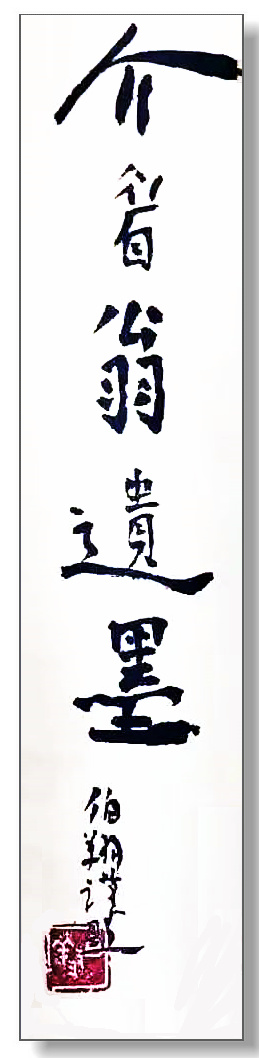 介眉翁遺墨
伯翔謹題